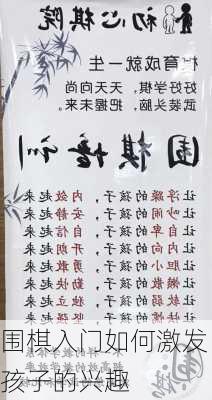 初心棋院
育成就一生
好好学棋 天天向尚
武装头脑 把握未来
围棋培训
让浮躁的孩子,内敛起来
让吵闹的孩子,安静起来
让自卑的孩子,自信起来
让内向的孩子,开朗起来
让胆小的孩子,勇敢起来
让懒散的孩子,勤快起来
让 的孩子, 起来
让 的孩子, 起来
围棋入门如何激发
孩子的兴趣